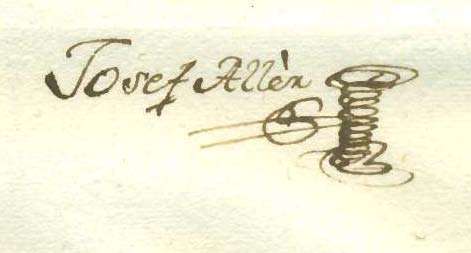 Josef Allèn